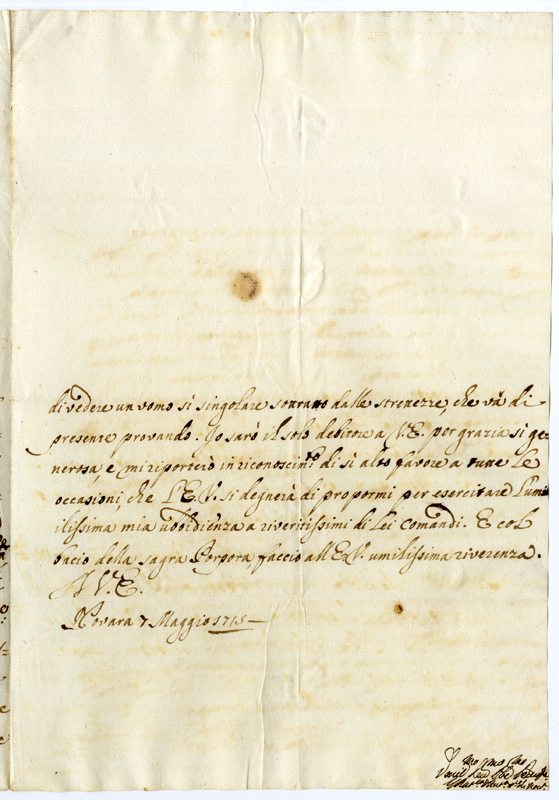 di vedere un uomo si singolare sottratto dalle strenezze, che và di-
presente provando. Io sarò il solo debitore a V.E. per grazia si ge-
nerosa, e mi riporterò in riconoscim.to di si alto favore a tutte le
occasioni, che l'E.V. si degnerà di propormi per esercitare l'umi
ilissima mia ubbidienza a riveritissimi di Lei comandi. E col
bacio della sagra Porpora, faccio all'E.V. umilissima riverenza.
D V.E.
Novara 7 Maggio 1715